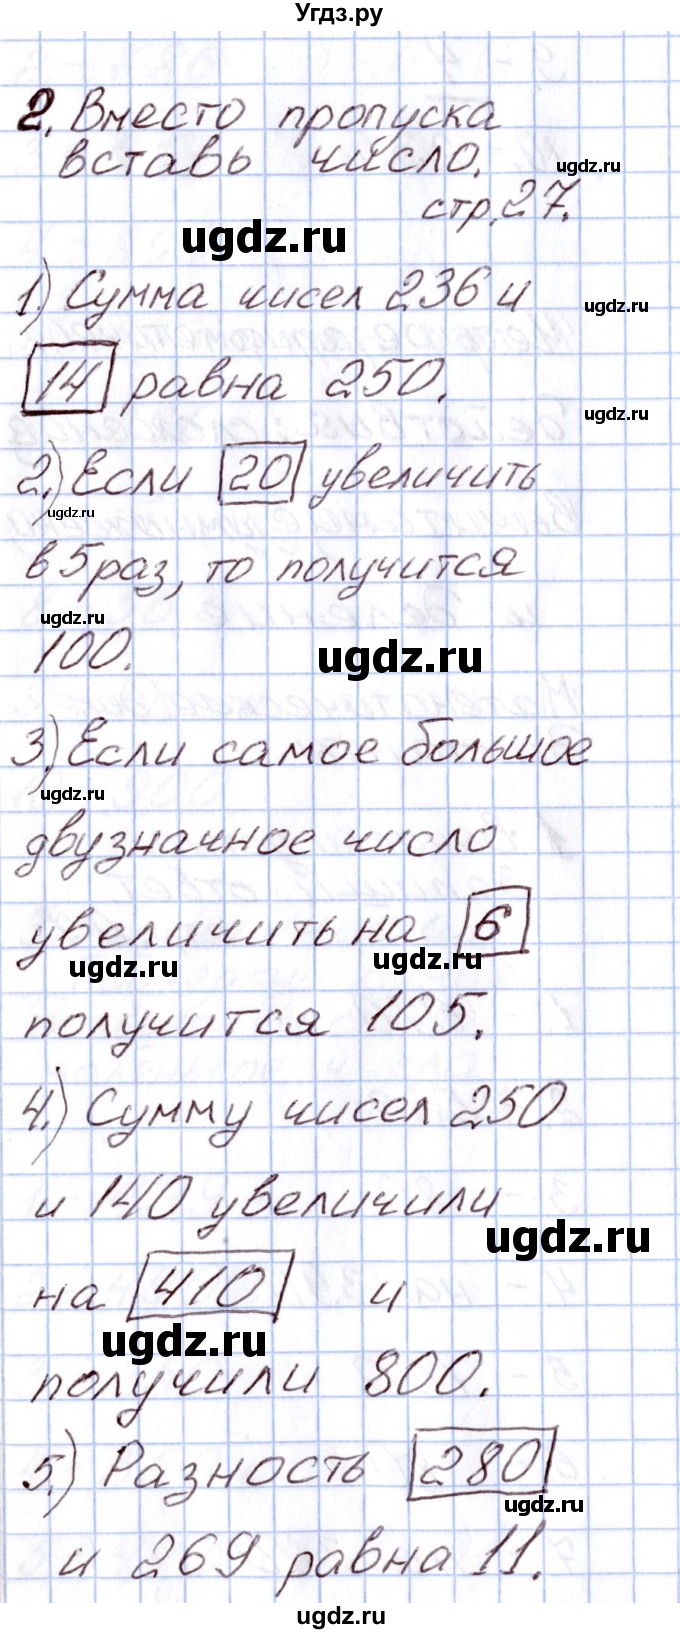 Угдз.ру
2. Вместо пропуска
вставь число.
ugdz.ru
стр. 27.
ugdz.ru
1.) Сумма чисел 236 и
ugdz.ru
14 равна 250.
ugdz.ru
2.) Если 20 увеличить
ugdz.ru
в 5 раз, то получится
ugdz.ru
100.
ugdz.ru
3.) Если самое большое
ugdz.ru
двузначное число
увеличить на 6
ugdz.ru
ugdz.ru
получится 105.
4.) Сумму чисел 250
и 140 увеличили
ugdz.ru
на 410 и
ugdz.ru
получили 800.
5.) Разность 280
ugdz.ru
и 269 равна 11.
ugdz.ru